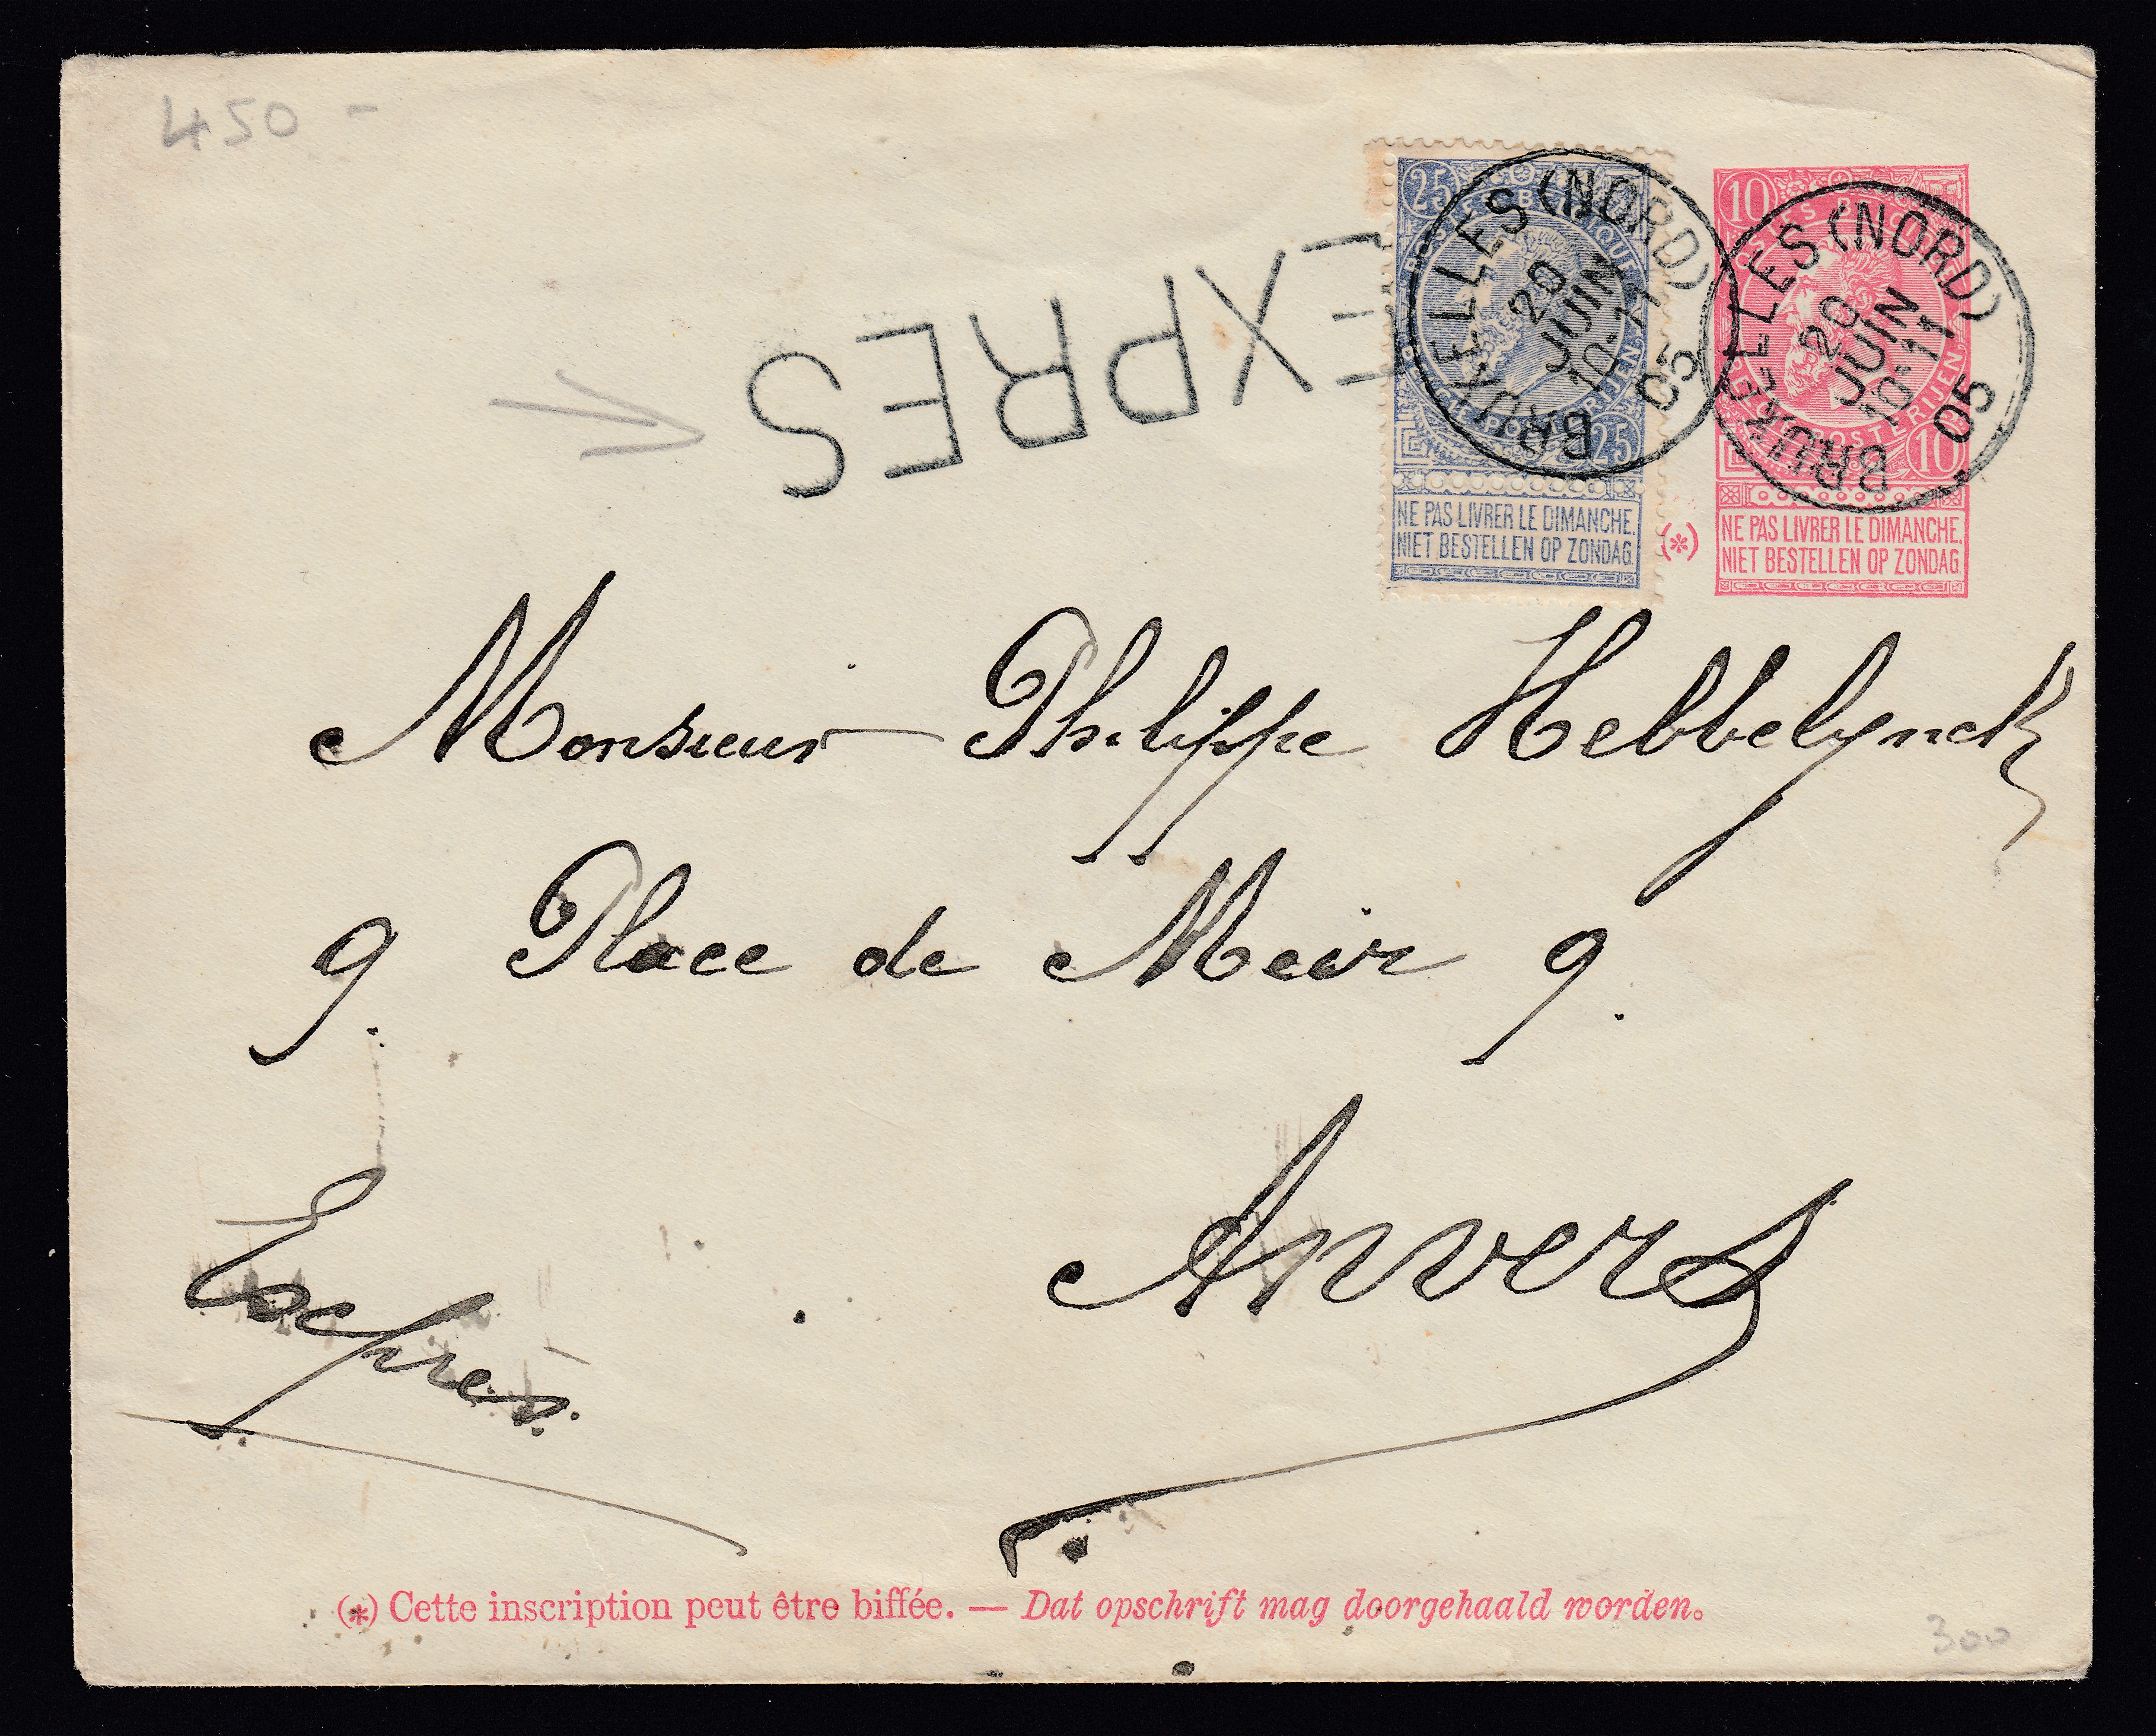 450 -
EXPRES
25
POSTES BELGIQUE
BELGIE POSTERIJEN
25
NE PAS LIVRER LE DIMANCHE.
NIET BESTELLEN OP ZONDAG.
BRUXELLES (NORD)
20
JUIN
10-11
05
(*)
10
POSTES BELGIQUE
BELGIE POSTERIJEN
10
NE PAS LIVRER LE DIMANCHE.
NIET BESTELLEN OP ZONDAG.
BRUXELLES (NORD)
20
JUIN
10-11
05
Monsieur Philippe Hebbelynck
9. Place de Meir 9.
Anvers
Exprès.
(*) Cette inscription peut être biffée. — Dat opschrift mag doorgehaald worden.
300